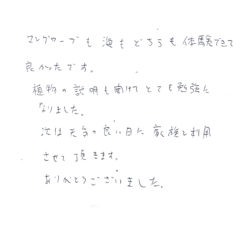 マングローブも海もどちらも体験できて
良かったです。
植物の説明も聞けてとても勉強に
なりました。
次は天気の良い日に家族と利用
させて頂きます。
ありがとうございました。